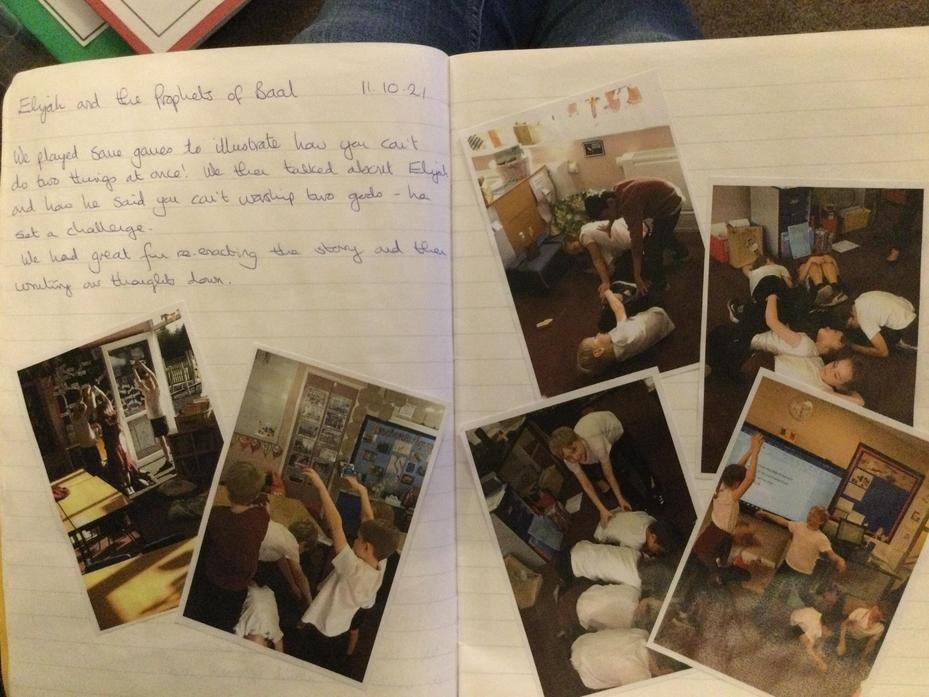 Elijah and the Prophets of Baal 11.10.21
We played some games to illustrate how you can't
do two things at once! We then talked about Elijah
and how he said you can't worship two gods - he
set a challenge.
We had great fun re-enacting the story and then
writing our thoughts down.